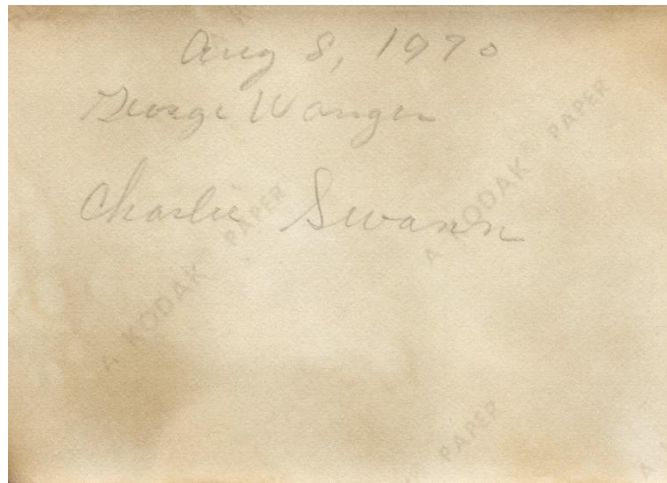 Aug 8, 1970
George Wanger
Charlie Swann
A KODAK PAPER
A KODAK PAPER
PAPER